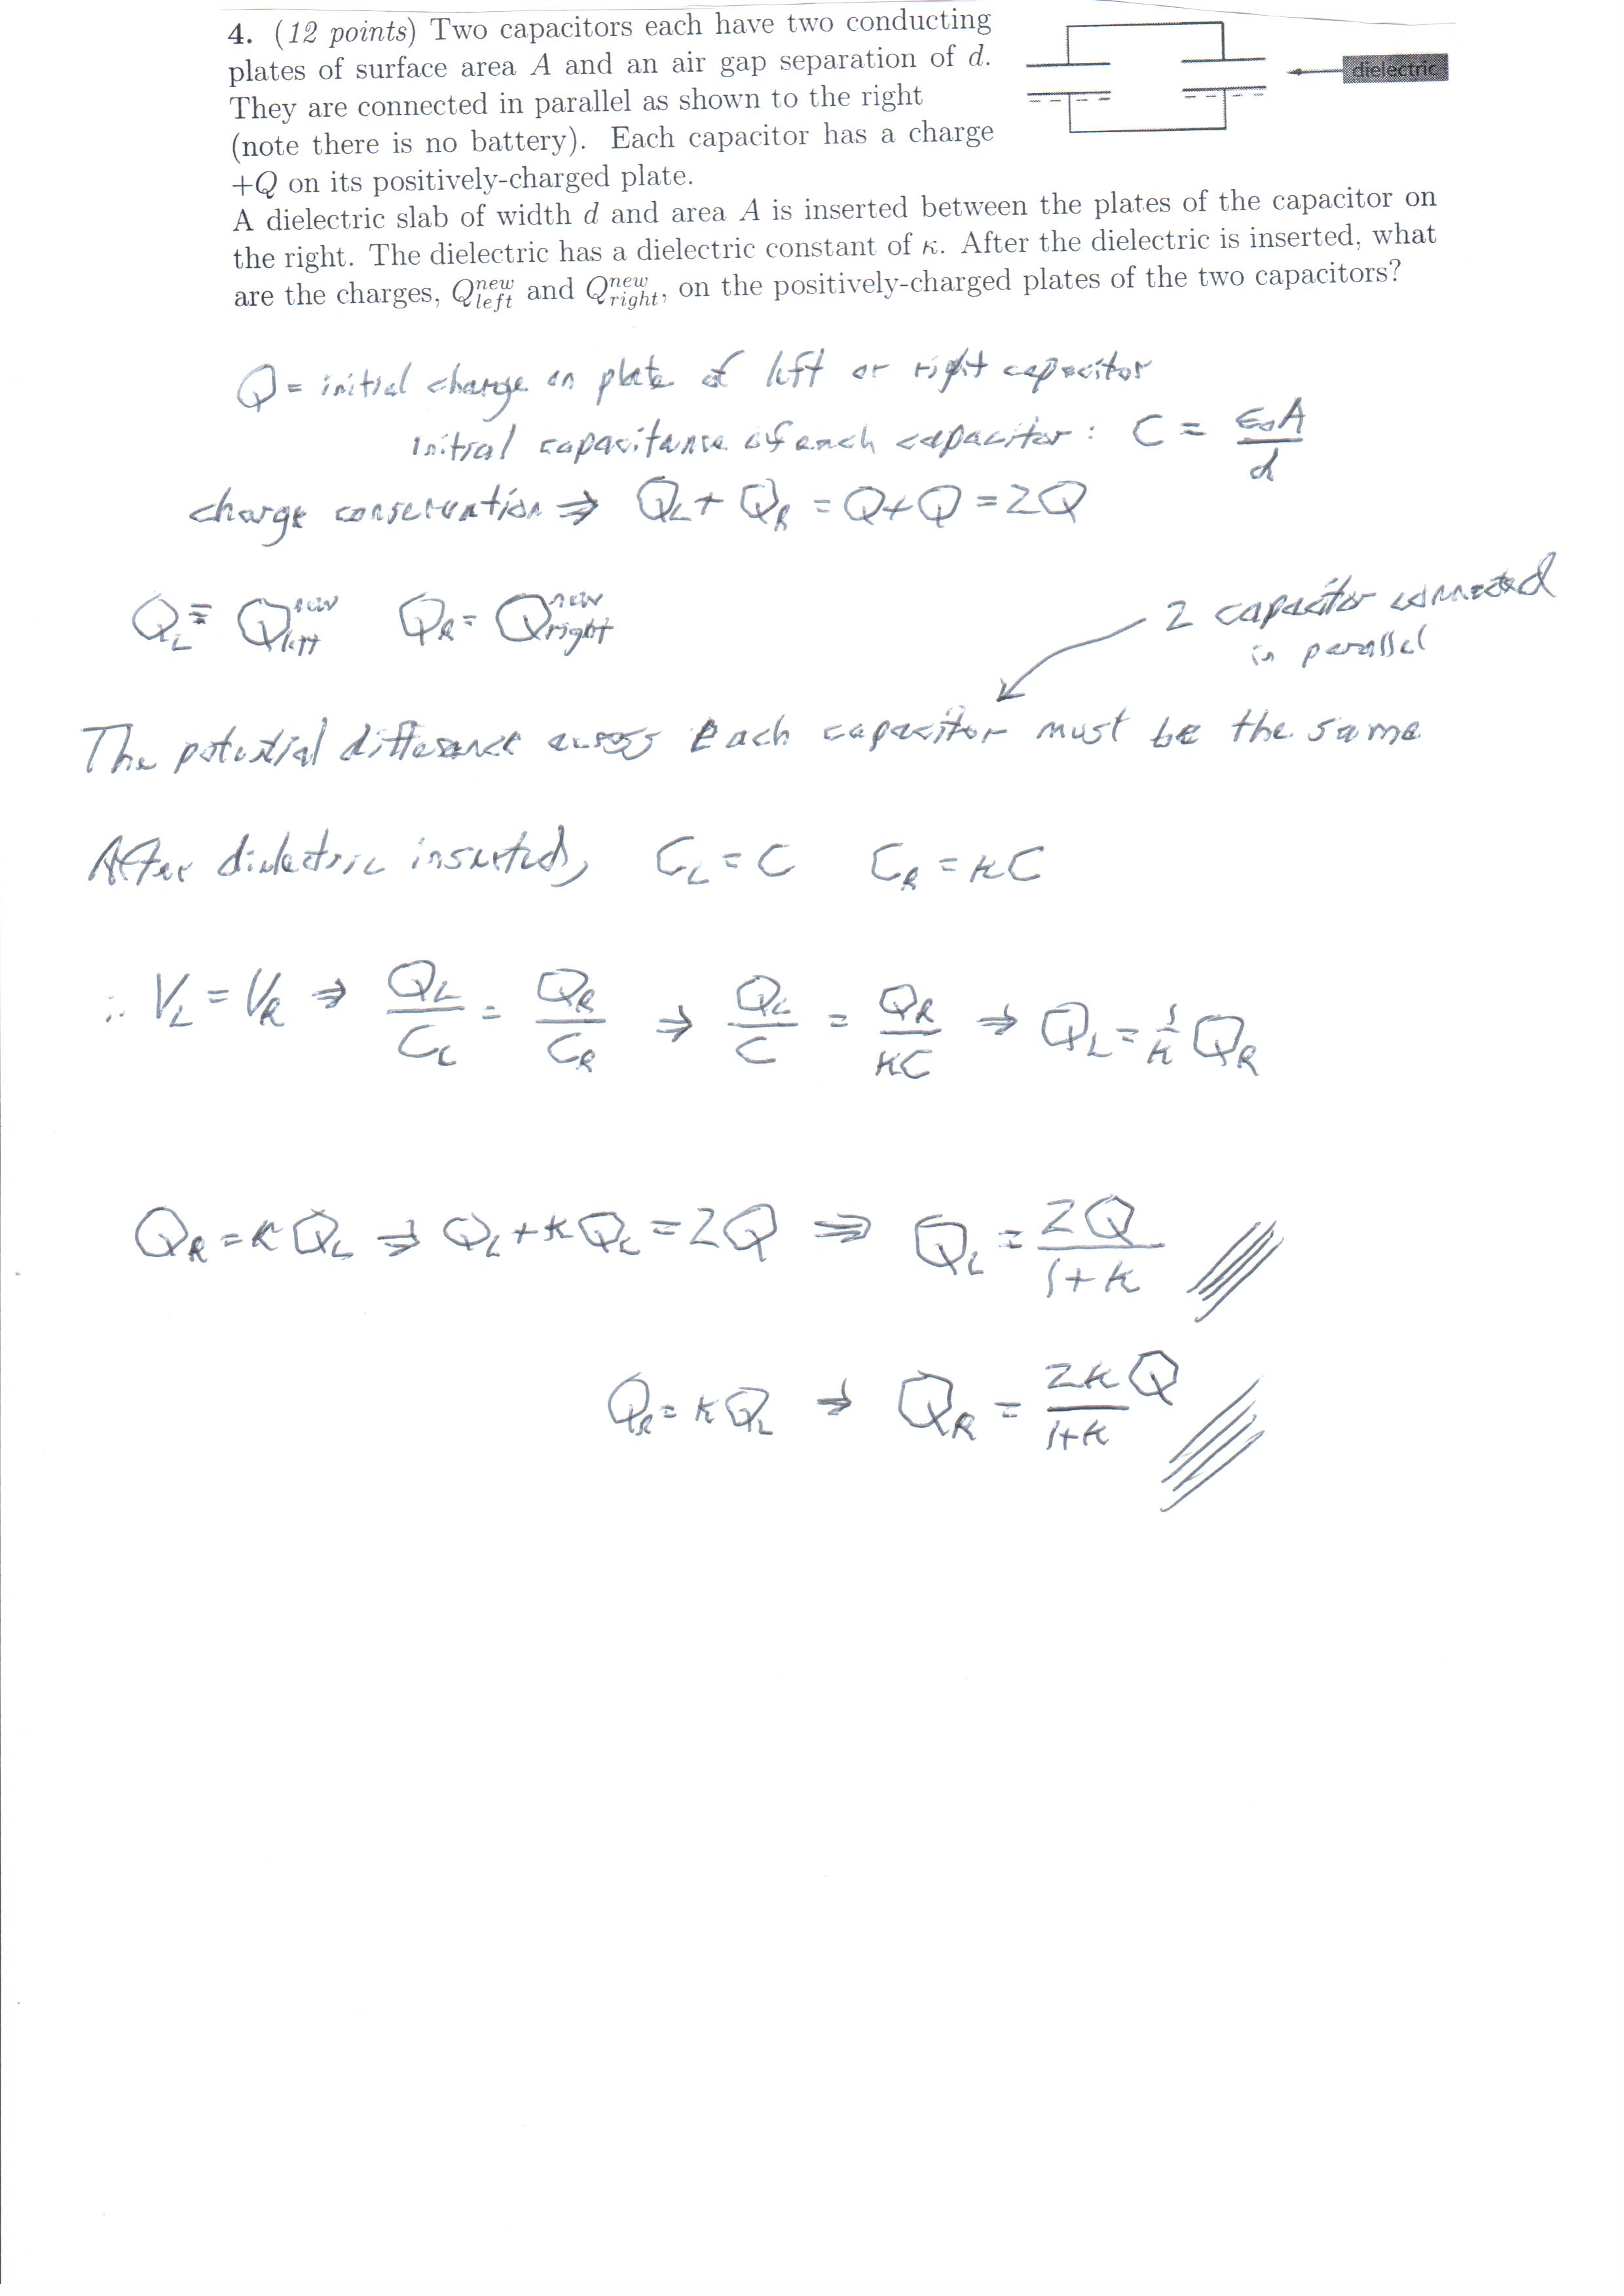 4. (12 points) Two capacitors each have two conducting
plates of surface area A and an air gap separation of d.
They are connected in parallel as shown to the right
(note there is no battery). Each capacitor has a charge
+Q on its positively-charged plate.
dielectric
A dielectric slab of width d and area A is inserted between the plates of the capacitor on
the right. The dielectric has a dielectric constant of κ. After the dielectric is inserted, what
are the charges, Q_left^new and Q_right^new, on the positively-charged plates of the two capacitors?
Q = initial charge on plate of left or right capacitor
initial capacitance of each capacitor : C = ε₀A/d
charge conservation ⇒ Q_L + Q_R = Q+Q = 2Q
Q_L ≡ Q_left^new Q_R = Q_right^new
2 capacitor connected
in parallel
The potential difference across Each capacitor must be the same
After dielectric inserted, C_L = C C_R = κC
∴ V_L = V_R ⇒ Q_L/C_L = Q_R/C_R ⇒ Q_L/C = Q_R/κC ⇒ Q_L = 1/κ Q_R
Q_R = κQ_L ⇒ Q_L + κQ_L = 2Q ⇒ Q_L = 2Q/1+κ
Q_R = κQ_L ⇒ Q_R = 2κQ/1+κ